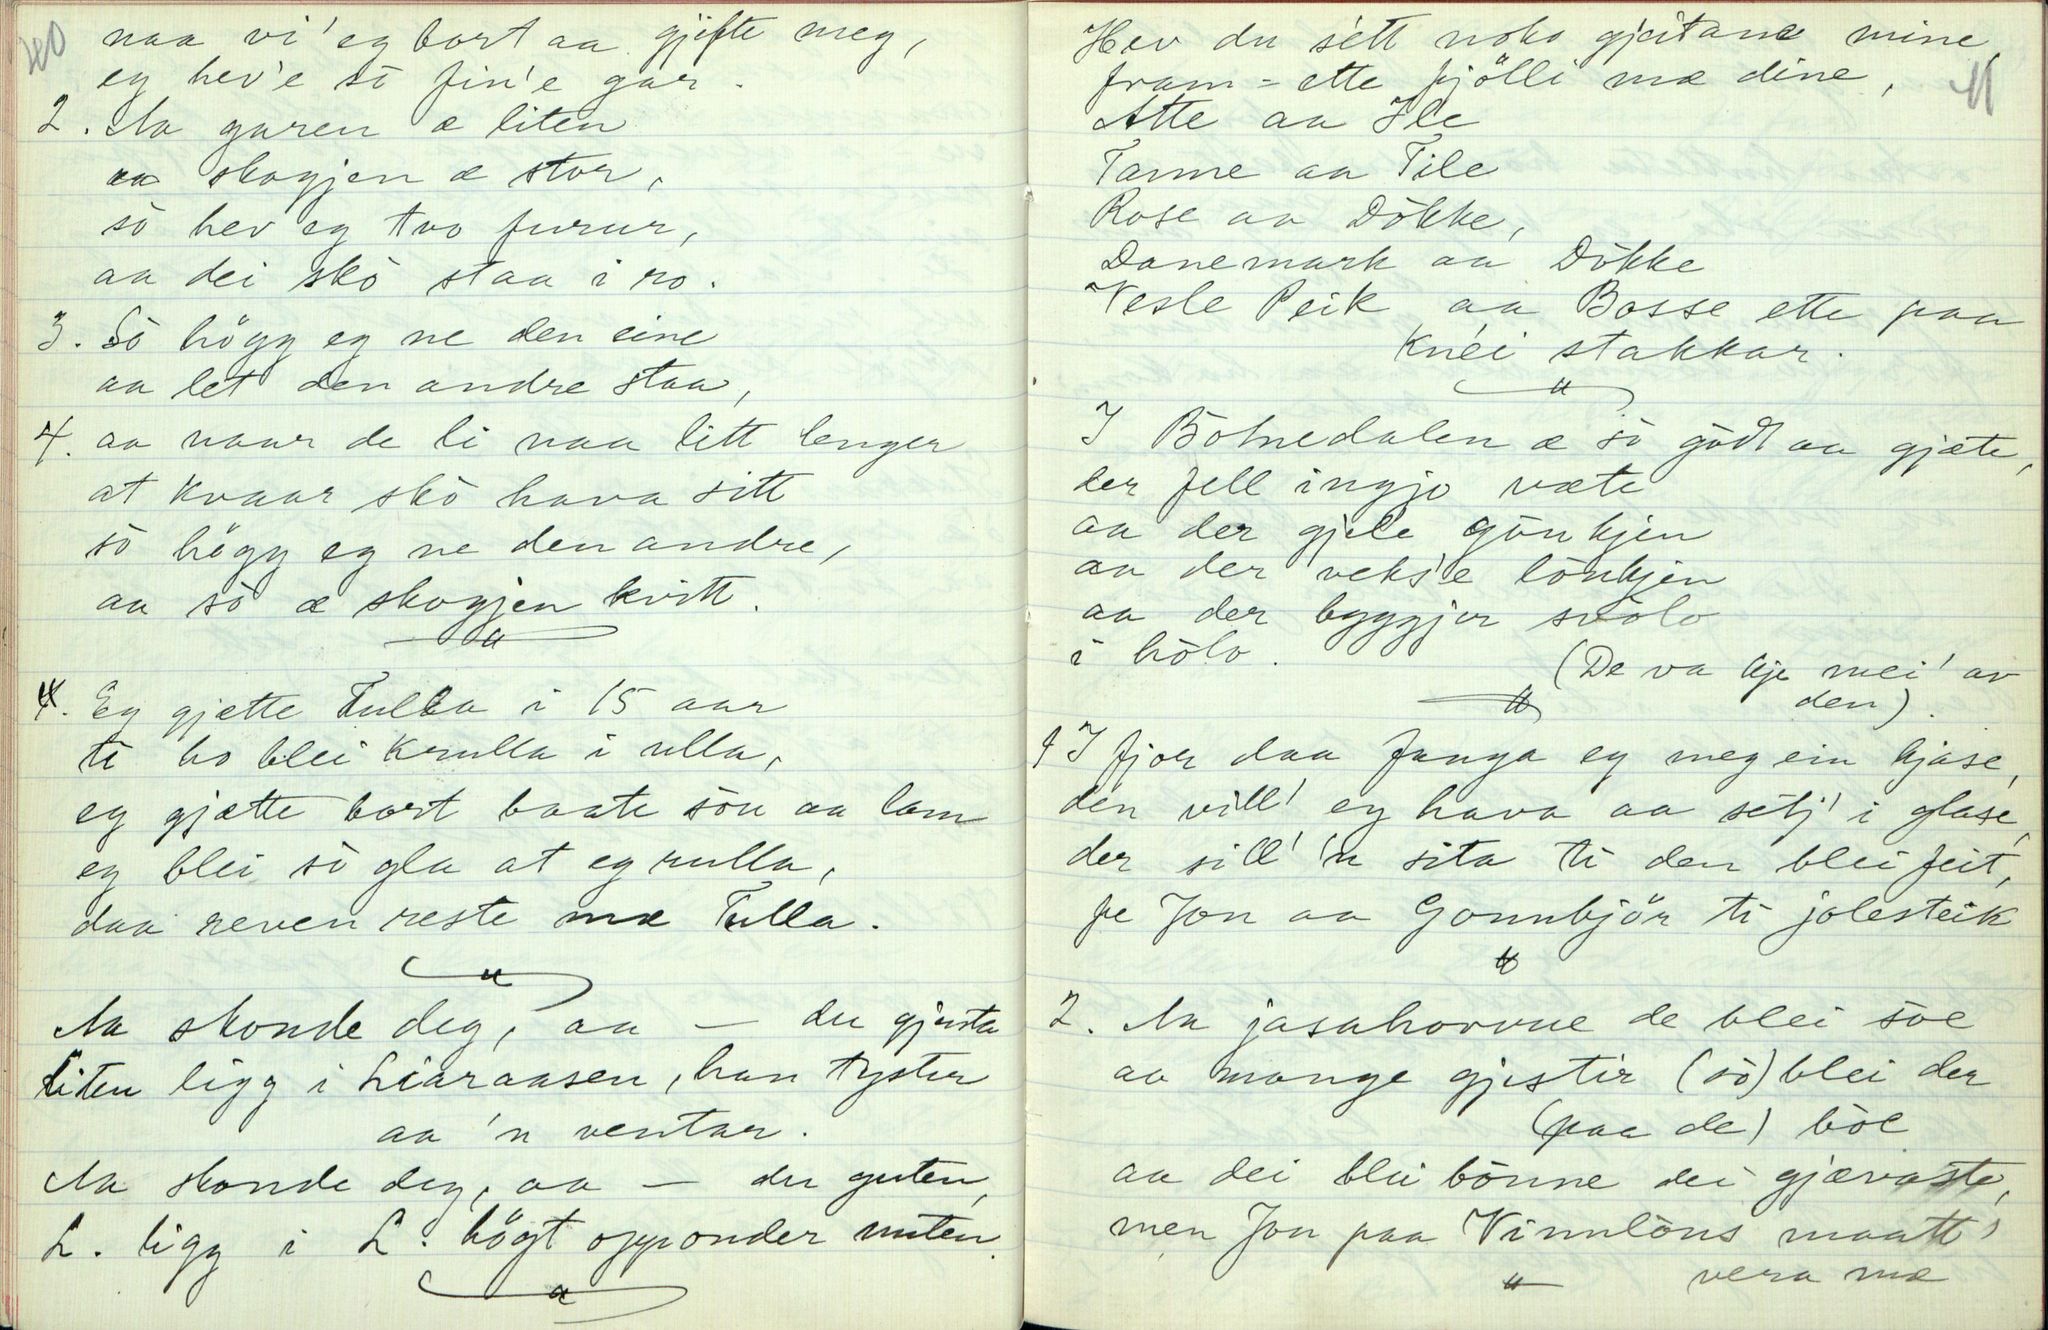 40
naa vi' eg bort aa gjifte meg,
eg hev'e sò fin'e gar.
2. Aa garen æ liten
aa skogjen æ stor,
sò hev eg tvo furur,
aa dei skò staa i ro.
3. Sò högg eg ne den eine
aa let den andre staa,
4. aa naar de li naa litt lenger
at kvaar skò hava sitt
sò högg eg ne den andre,
aa sò æ skogjen kvitt.
4. Eg gjætte Tulla i 15 aar
ti ho blei krulla i ulla,
eg gjætte bort baate sòu aa lam
eg blei sò gla at eg rulla,
daa reven reste mæ Tulla.
Aa skonde deg, aa — du gjenta
liten ligg i Liaraasen, han tyster
aa 'n ventar.
Aa skonde deg, aa — du guten,
L. ligg i L. högt opponder nuten.
41
Hev du sétt noko gjeitane mine,
fram-ette fjölli mæ dine,
Atte aa Ile
Tanne aa Tile
Rose aa Dòkke,
Danemark aa Dòkke
Vesle Peik aa Bosse ette paa
Knéi stakkar.
I Botnedalen æ sò gòdt aa gjæte,
der fell ingjo væte
aa der gjele gòukjen
aa der veks'e lòukjen
aa der byggjer svòlo
i hòlo.
(De va kje mei' av
den).
1 I fjor daa fanga eg meg ein hjase,
den vill' eg hava aa sétj' i glase,
der sill' 'n sita ti den blei feit,
fe Jon aa Gonnbjör ti jolesteik
2. Aa jasahovvue de blei sòe
aa mange gjestir (sò) blei der
(paa de) bòe
aa dei blei bònne dei gjævaste,
men Jon paa Vinnlòns maatt'
vera mæ